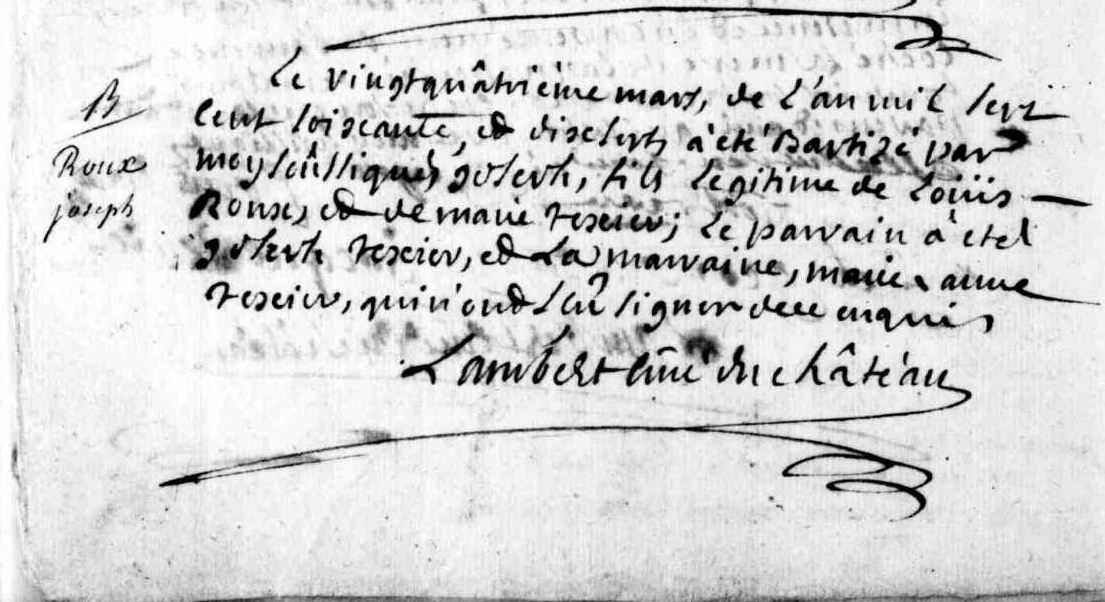 B
Roux
joseph
Le vingtquâtriéme mars, de L'an mil sept
cent soiscante, et dixsept, à été Baptizé par
moy soûssigné, joseph, fils Legitime de Loüis
Roux, et de marie texier; Le parrain à eté
joseph texier, et La marraine, marie anne
texier, qui n'ont sçû signer de ce enquis
Lambert curé du château